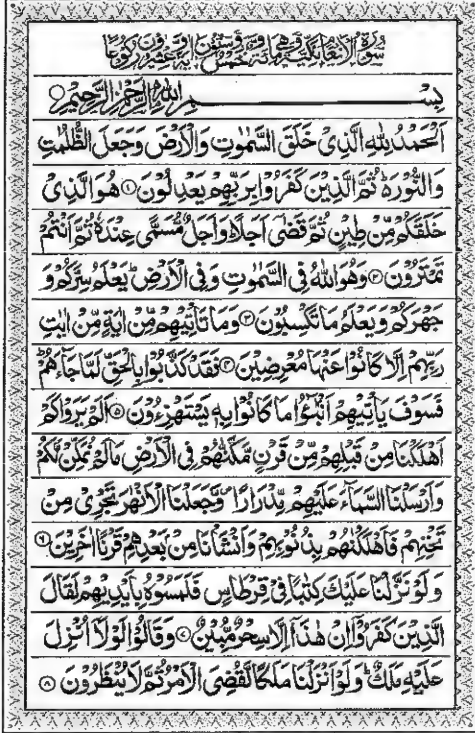 سُوْرَةُ الْاَنْعَامِ مَكِّيَّةٌ وَّهِيَ مِائَةٌ وَّخَمْسٌ وَّسِتُّوْنَ اٰيَةً وَّعِشْرُوْنَ رُكُوْعًا
بِسْــــــمِ اللّٰهِ الرَّحْمٰنِ الرَّحِيْمِ ○
اَلْحَمْدُ لِلّٰهِ الَّذِيْ خَلَقَ السَّمٰوٰتِ وَالْاَرْضَ وَجَعَلَ الظُّلُمٰتِ
وَالنُّوْرَ ۬ؕ ثُمَّ الَّذِيْنَ كَفَرُوْا بِرَبِّهِمْ يَعْدِلُوْنَ ۝۱ هُوَ الَّذِيْ
خَلَقَكُمْ مِّنْ طِيْنٍ ثُمَّ قَضٰۤى اَجَلًا ؕ وَاَجَلٌ مُّسَمًّى عِنْدَهٗ ثُمَّ اَنْتُمْ
تَمْتَرُوْنَ ۝۲ وَهُوَ اللّٰهُ فِي السَّمٰوٰتِ وَفِي الْاَرْضِ ؕ يَعْلَمُ سِرَّكُمْ وَ
جَهْرَكُمْ وَيَعْلَمُ مَا تَكْسِبُوْنَ ۝۳ وَمَا تَاْتِيْهِمْ مِّنْ اٰيَةٍ مِّنْ اٰيٰتِ
رَبِّهِمْ اِلَّا كَانُوْا عَنْهَا مُعْرِضِيْنَ ۝۴ فَقَدْ كَذَّبُوْا بِالْحَقِّ لَمَّا جَآءَهُمْ ؕ
فَسَوْفَ يَاْتِيْهِمْ اَنْۢبٰٓؤُا مَا كَانُوْا بِهٖ يَسْتَهْزِءُوْنَ ۝۵ اَلَمْ يَرَوْا كَمْ
اَهْلَكْنَا مِنْ قَبْلِهِمْ مِّنْ قَرْنٍ مَّكَّنّٰهُمْ فِي الْاَرْضِ مَا لَمْ نُمَكِّنْ لَّكُمْ
وَاَرْسَلْنَا السَّمَآءَ عَلَيْهِمْ مِّدْرَارًا ۪ وَّجَعَلْنَا الْاَنْهٰرَ تَجْرِيْ مِنْ
تَحْتِهِمْ فَاَهْلَكْنٰهُمْ بِذُنُوْبِهِمْ وَاَنْشَاْنَا مِنْۢ بَعْدِهِمْ قَرْنًا اٰخَرِيْنَ ۝۶
وَلَوْ نَزَّلْنَا عَلَيْكَ كِتٰبًا فِيْ قِرْطَاسٍ فَلَمَسُوْهُ بِاَيْدِيْهِمْ لَقَالَ
الَّذِيْنَ كَفَرُوْۤا اِنْ هٰذَاۤ اِلَّا سِحْرٌ مُّبِيْنٌ ۝۷ وَقَالُوْا لَوْلَاۤ اُنْزِلَ
عَلَيْهِ مَلَكٌ ؕ وَلَوْ اَنْزَلْنَا مَلَكًا لَّقُضِيَ الْاَمْرُ ثُمَّ لَا يُنْظَرُوْنَ ۝۸